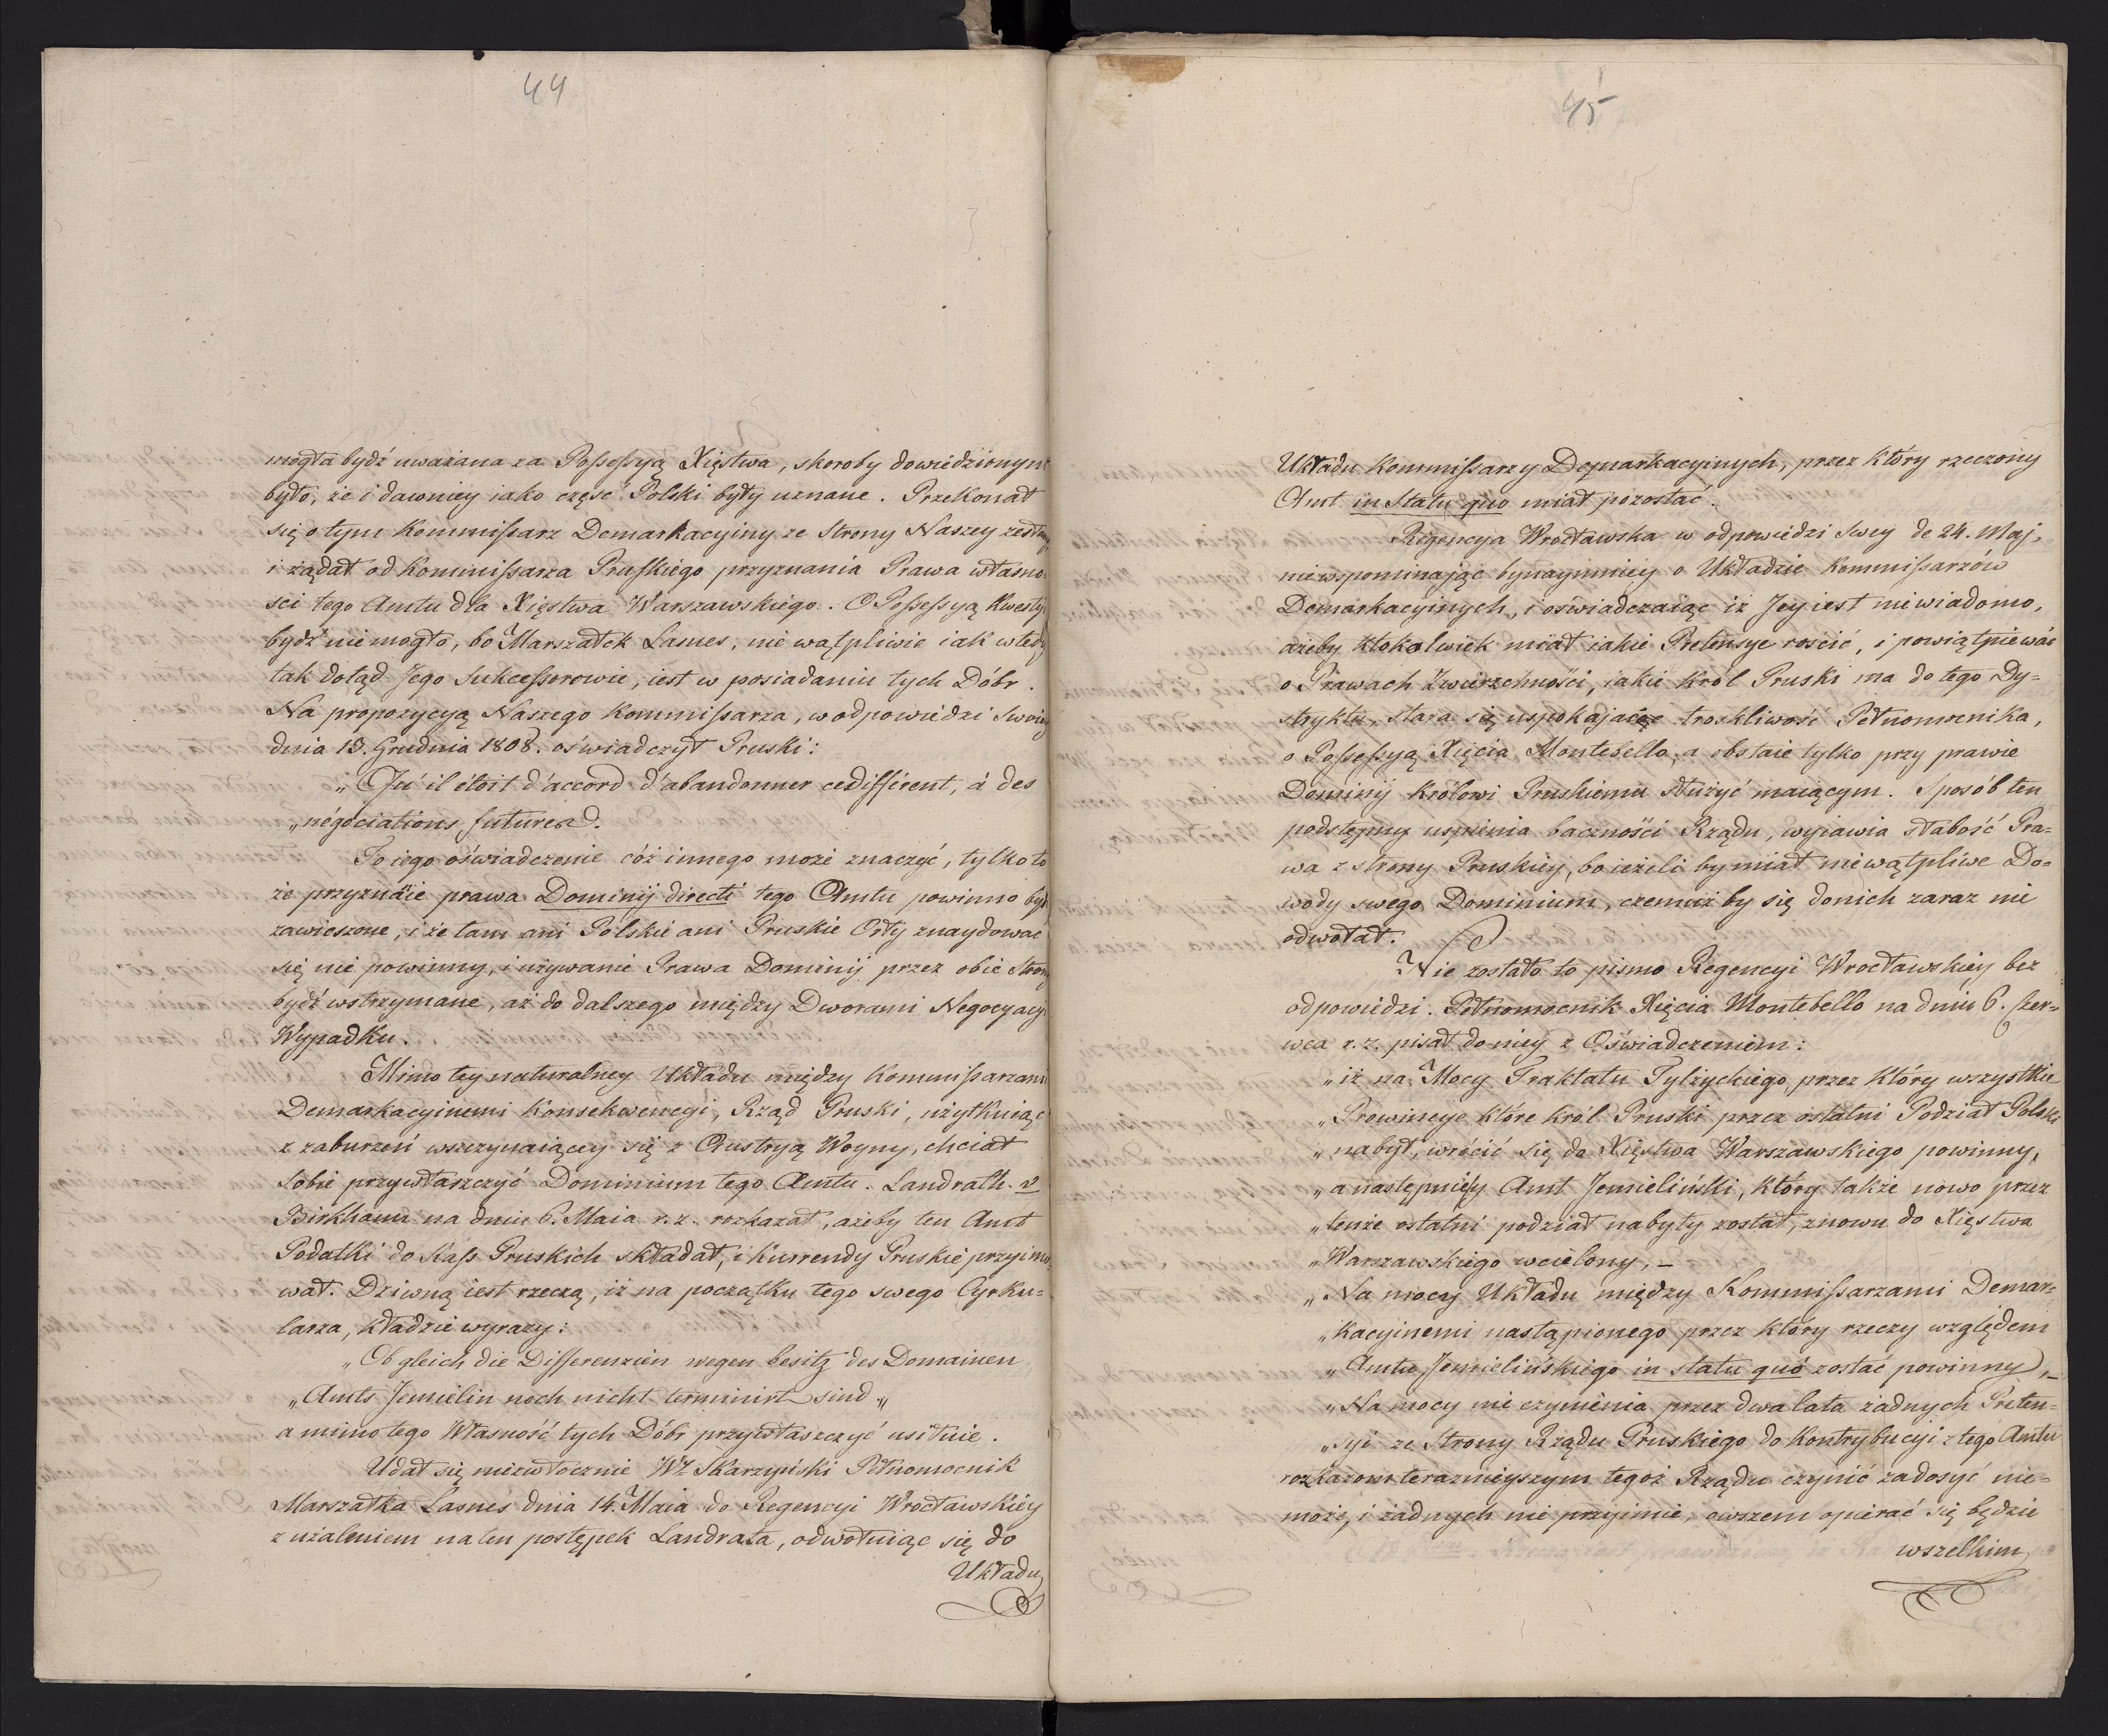 44
mogła bydź uważana za Possessyą Xięstwa, skoroby dowiedzionym
było, że i dawniey iako część Polski były uznane. Przekonał
się o tym Kommissarz Demarkacyiny ze Strony Naszey
i żądał od Kommissarza Pruskiego przyznania Prawa własno-
ści tego Amtu dla Xięstwa Warszawskiego. O Possessyą Kwestyi
bydź nie mogło, bo Marszałek Lasnes, nie wątpliwie iak wtedy
tak dotąd Jego Sukcessorowie, iest w posiadaniu tych Dóbr.
Na propozycyą Naszego Kommissarza, w odpowiedzi Swoiey
dnia 13. Grudnia 1808. oświadczył Pruski:
„Qu'il étoit d'accord d'abandonner ce différent, à des
„négociations futures.
To iego oświadczenie cóż innego może znaczyć, tylko to
że przyznaie prawa Dominij directi tego Amtu powinno bydź
zawieszone, i że tam ani Polskie ani Pruskie Orły znaydować
się nie powinny, i używanie Prawa Dominij przez obie Strony
bydź wstrzymane, aż do dalszego między Dworami Negocyacyi
Wypadku.
Mimo tey naturalney Układu między Kommissarzami
Demarkacyinemi Konsekwencyi, Rząd Pruski, użytkuiąc
z zaburzeń wszczynaiącey się z Austryą Woyny, chciał
sobie przywłaszczyć Dominium tego Amtu. Landrath v
Birkhann na dniu 6. Maia r. z. rozkazał, ażeby ten Amt
Podatki do Kass Pruskich składał, i Kurrendy Pruskie przyimo-
wał. Dziwną iest rzeczą, iż na początku tego swego Cyrku-
larza, kładzie wyrazy:
„Obgleich die Differenzien wegen besitz des Domainen
„Amts Jemielin noch nicht terminirt sind„
a mimo tego Własność tych Dóbr przywłaszczyć usiłuie.
Udał się niezwłocznie WŻ Skarzyński Pełnomocnik
Marszałka Lasnes dnia 14. Maia do Regencyi Wrocławskiey
z użaleniem na ten postępek Landrata, odwołuiąc się do
Układu
45
Układu Kommissarzy Demarkacyinych, przez który rzeczony
Amt in Statu quo miał pozostać.
Regencya Wrocławska w odpowiedzi swey de 24. Maj,
nie wspominając bynaymniey o Układzie Kommissarzów
Demarkacyinych, i oświadczaiąc iż Jey iest niewiadomo,
ażeby ktokolwiek miał iakie Pretensye rościć, i powiątpiewać
o Prawach Zwierzchności, iakie Król Pruski ma do tego Dy-
stryktu, stara się uspokajając troskliwość Pełnomocnika,
o Possessyą Xięcia Montebello, a obstaie tylko przy prawie
Dominij Królowi Pruskiemu służyć maiącym. Sposób ten
podstępny uspienia baczności Rządu, wyiawia słabość Pra-
wa z strony Pruskiey, bo ieżeli by miał niewątpliwe Do-
wody swego Dominium, czemuż by się do nich zaraz nie
odwołał.
Nie zostało to pismo Regencyi Wrocławskiey bez
odpowiedzi. Pełnomocnik Xięcia Montebello na dniu 6. Czer-
wca r. z. pisał do niey z Oświadczeniem:
„iż na Mocy Traktatu Tylżyckiego, przez który wszystkie
„Prowincye które Król Pruski przez ostatni Podział Polski
„nabył, wrócić się do Xięstwa Warszawskiego powinny,
„a następnie y Amt Jemieliński, który także nowo przez
„tenże ostatni podział nabyty został, znowu do Xięstwa
„Warszawskiego wcielony, –
„Na mocy Układu między Kommissarzami Demar-
„kacyinemi nastąpionego przez który rzeczy względem
„Amtu Jemielińskiego in statu quo zostać powinny, –
„Na mocy nie czynienia przez dwa lata żadnych Preten-
„syi ze Strony Rządu Pruskiego do Kontrybucyi z tego Amtu
rozkazom teraznieyszym tegoż Rządu czynić zadosyć nie-
może, i żadnych nie przyimie, owszem opierać się będzie
wszelkim